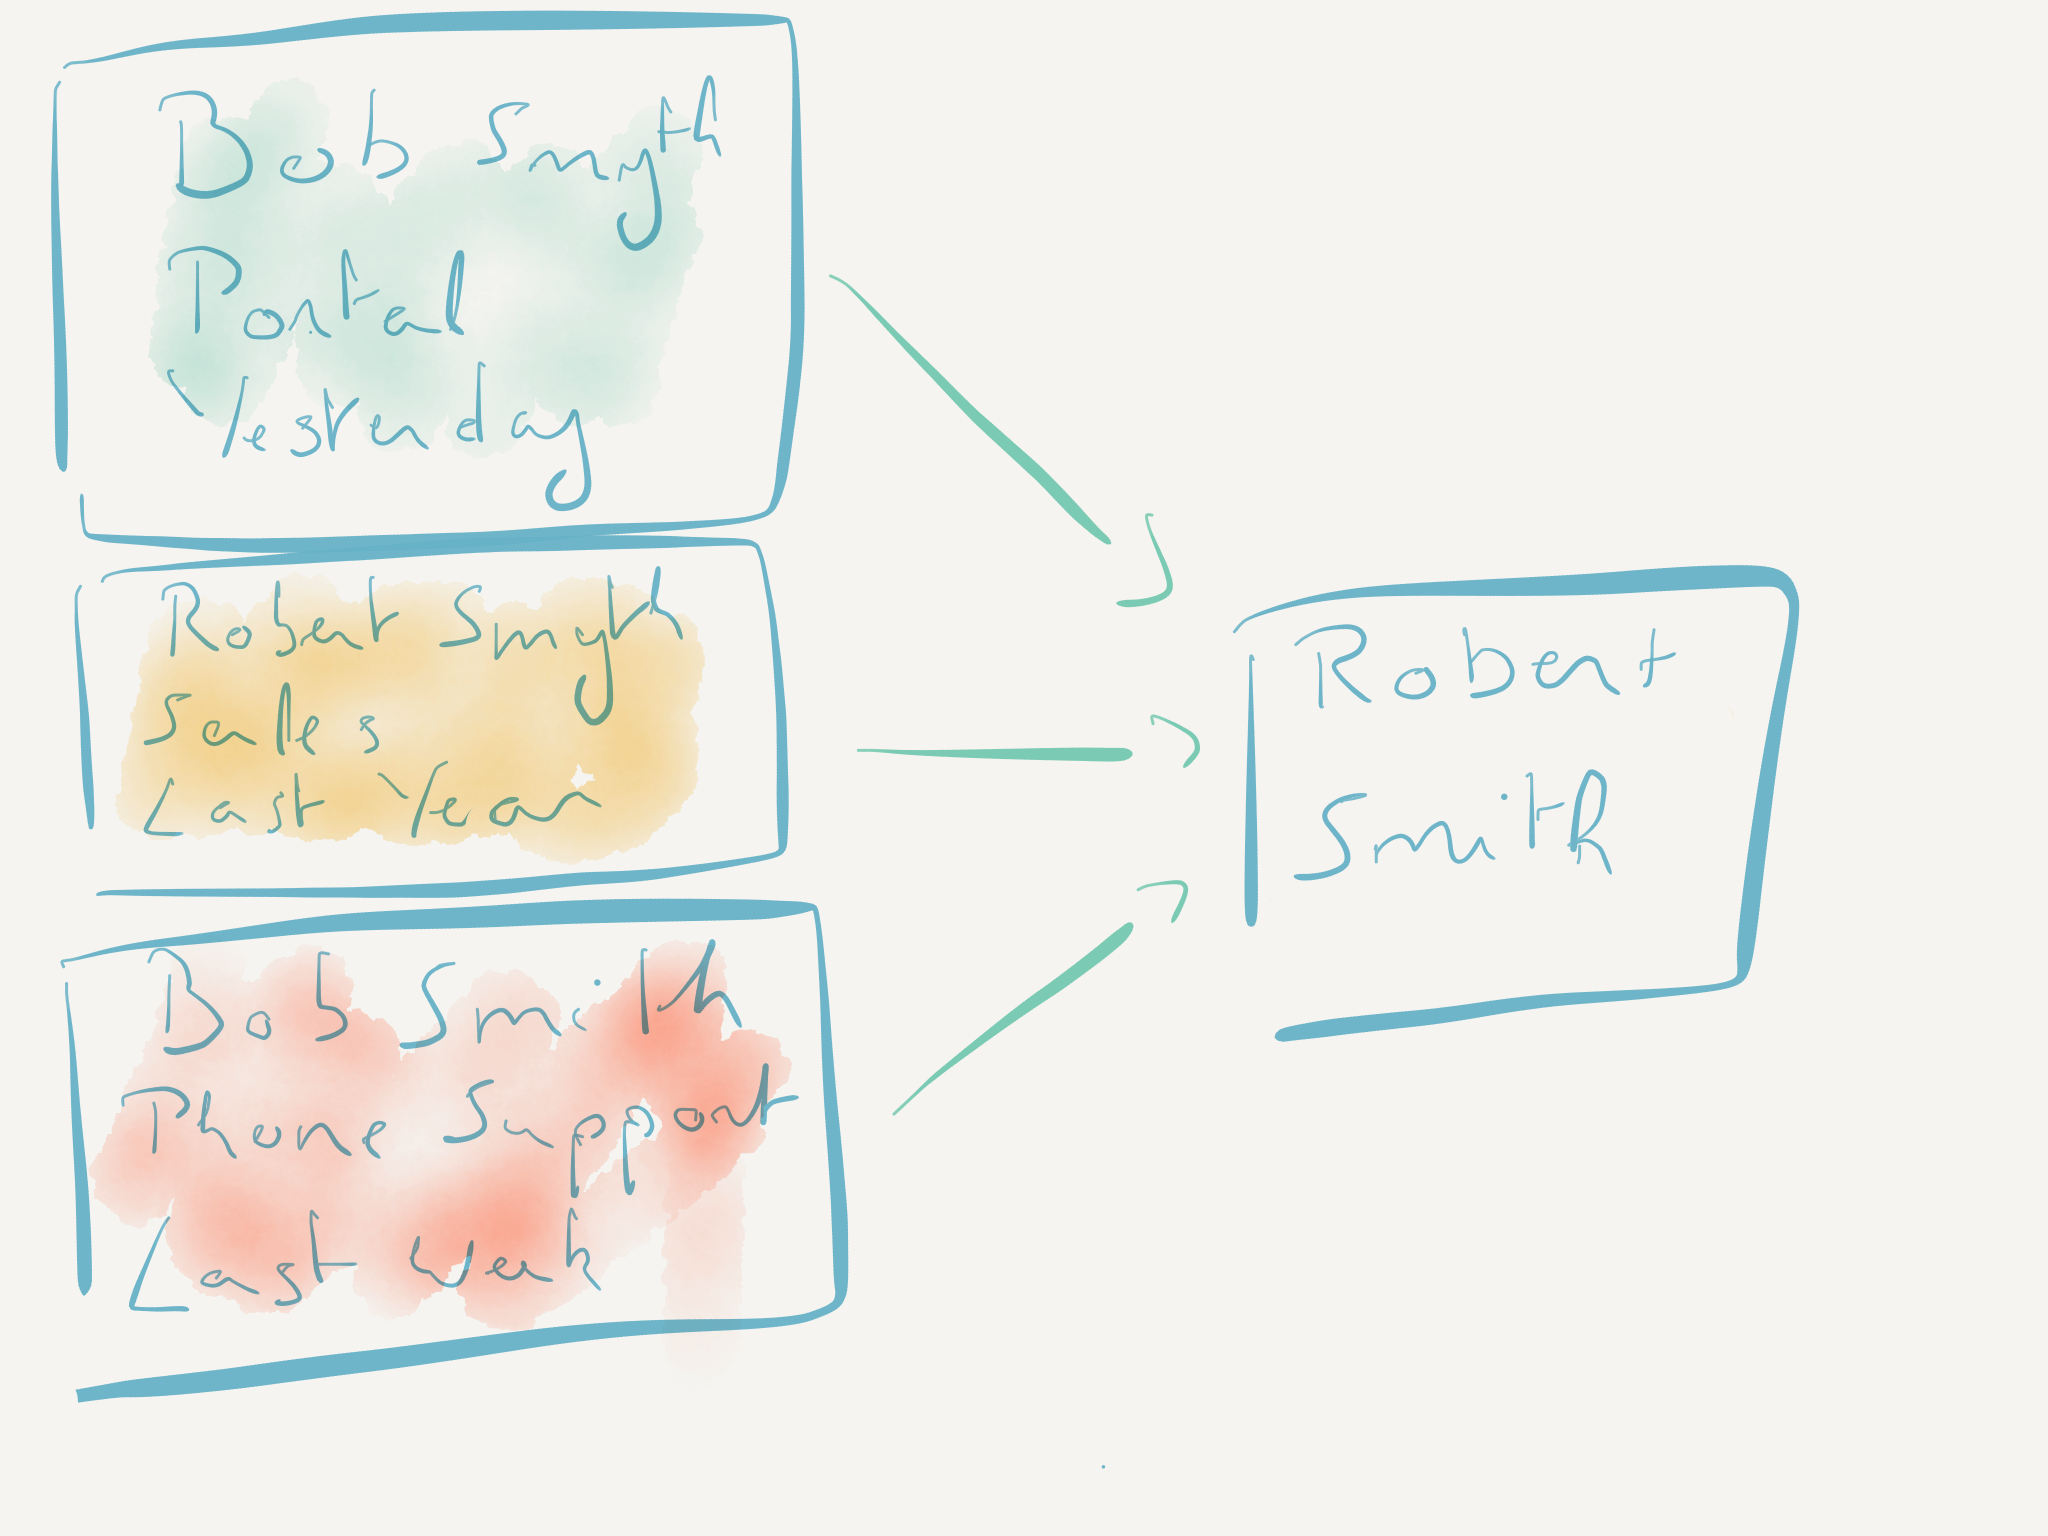 Bob Smyth
Portal
Yesterday
Robert Smyth
Sales
Last Year
Bob Smith
Phone Support
Last Week
Robert
Smith